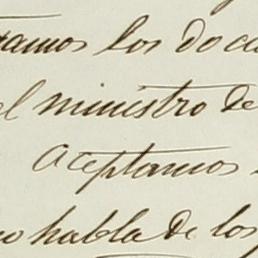 tamos los doca
el ministro de
aceptamos
no habla de los